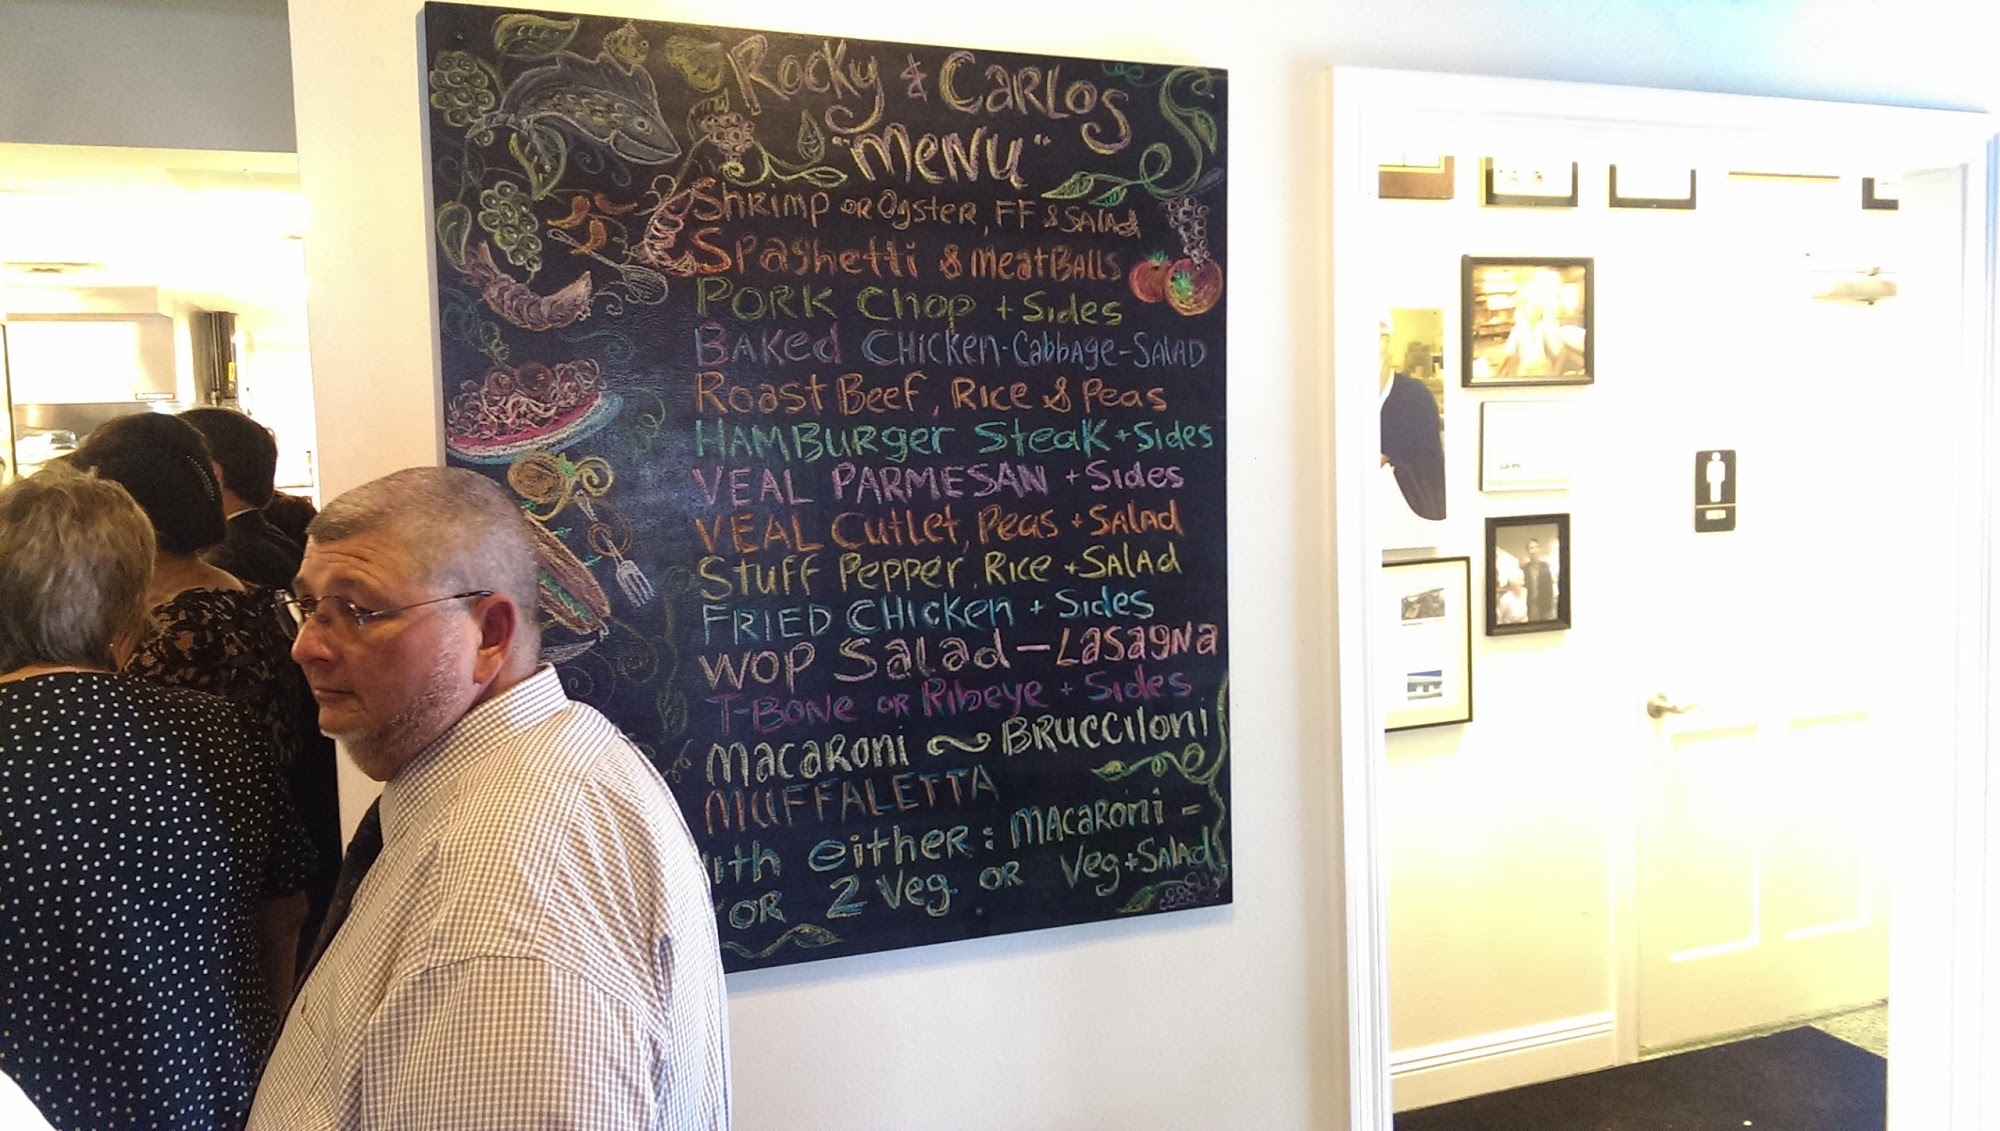 Rocky & Carlos
"Menu"
Shrimp or Oyster, FF & Salad
Spaghetti & Meatballs
Pork Chop + Sides
Baked Chicken-Cabbage-Salad
Roast Beef, Rice & Peas
Hamburger Steak + Sides
Veal Parmesan + Sides
Veal Cutlet, Peas + Salad
Stuff Pepper, Rice + Salad
Fried Chicken + Sides
Wop Salad — Lasagna
T-Bone or Ribeye + Sides
Macaroni ~ Brucciloni
Muffaletta
either: Macaroni =
or 2 Veg. or Veg + Salad